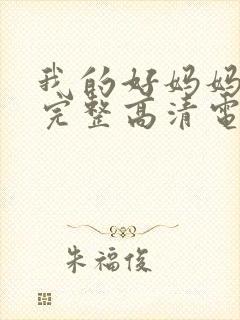 我的好妈妈
完整高清电
朱福俊